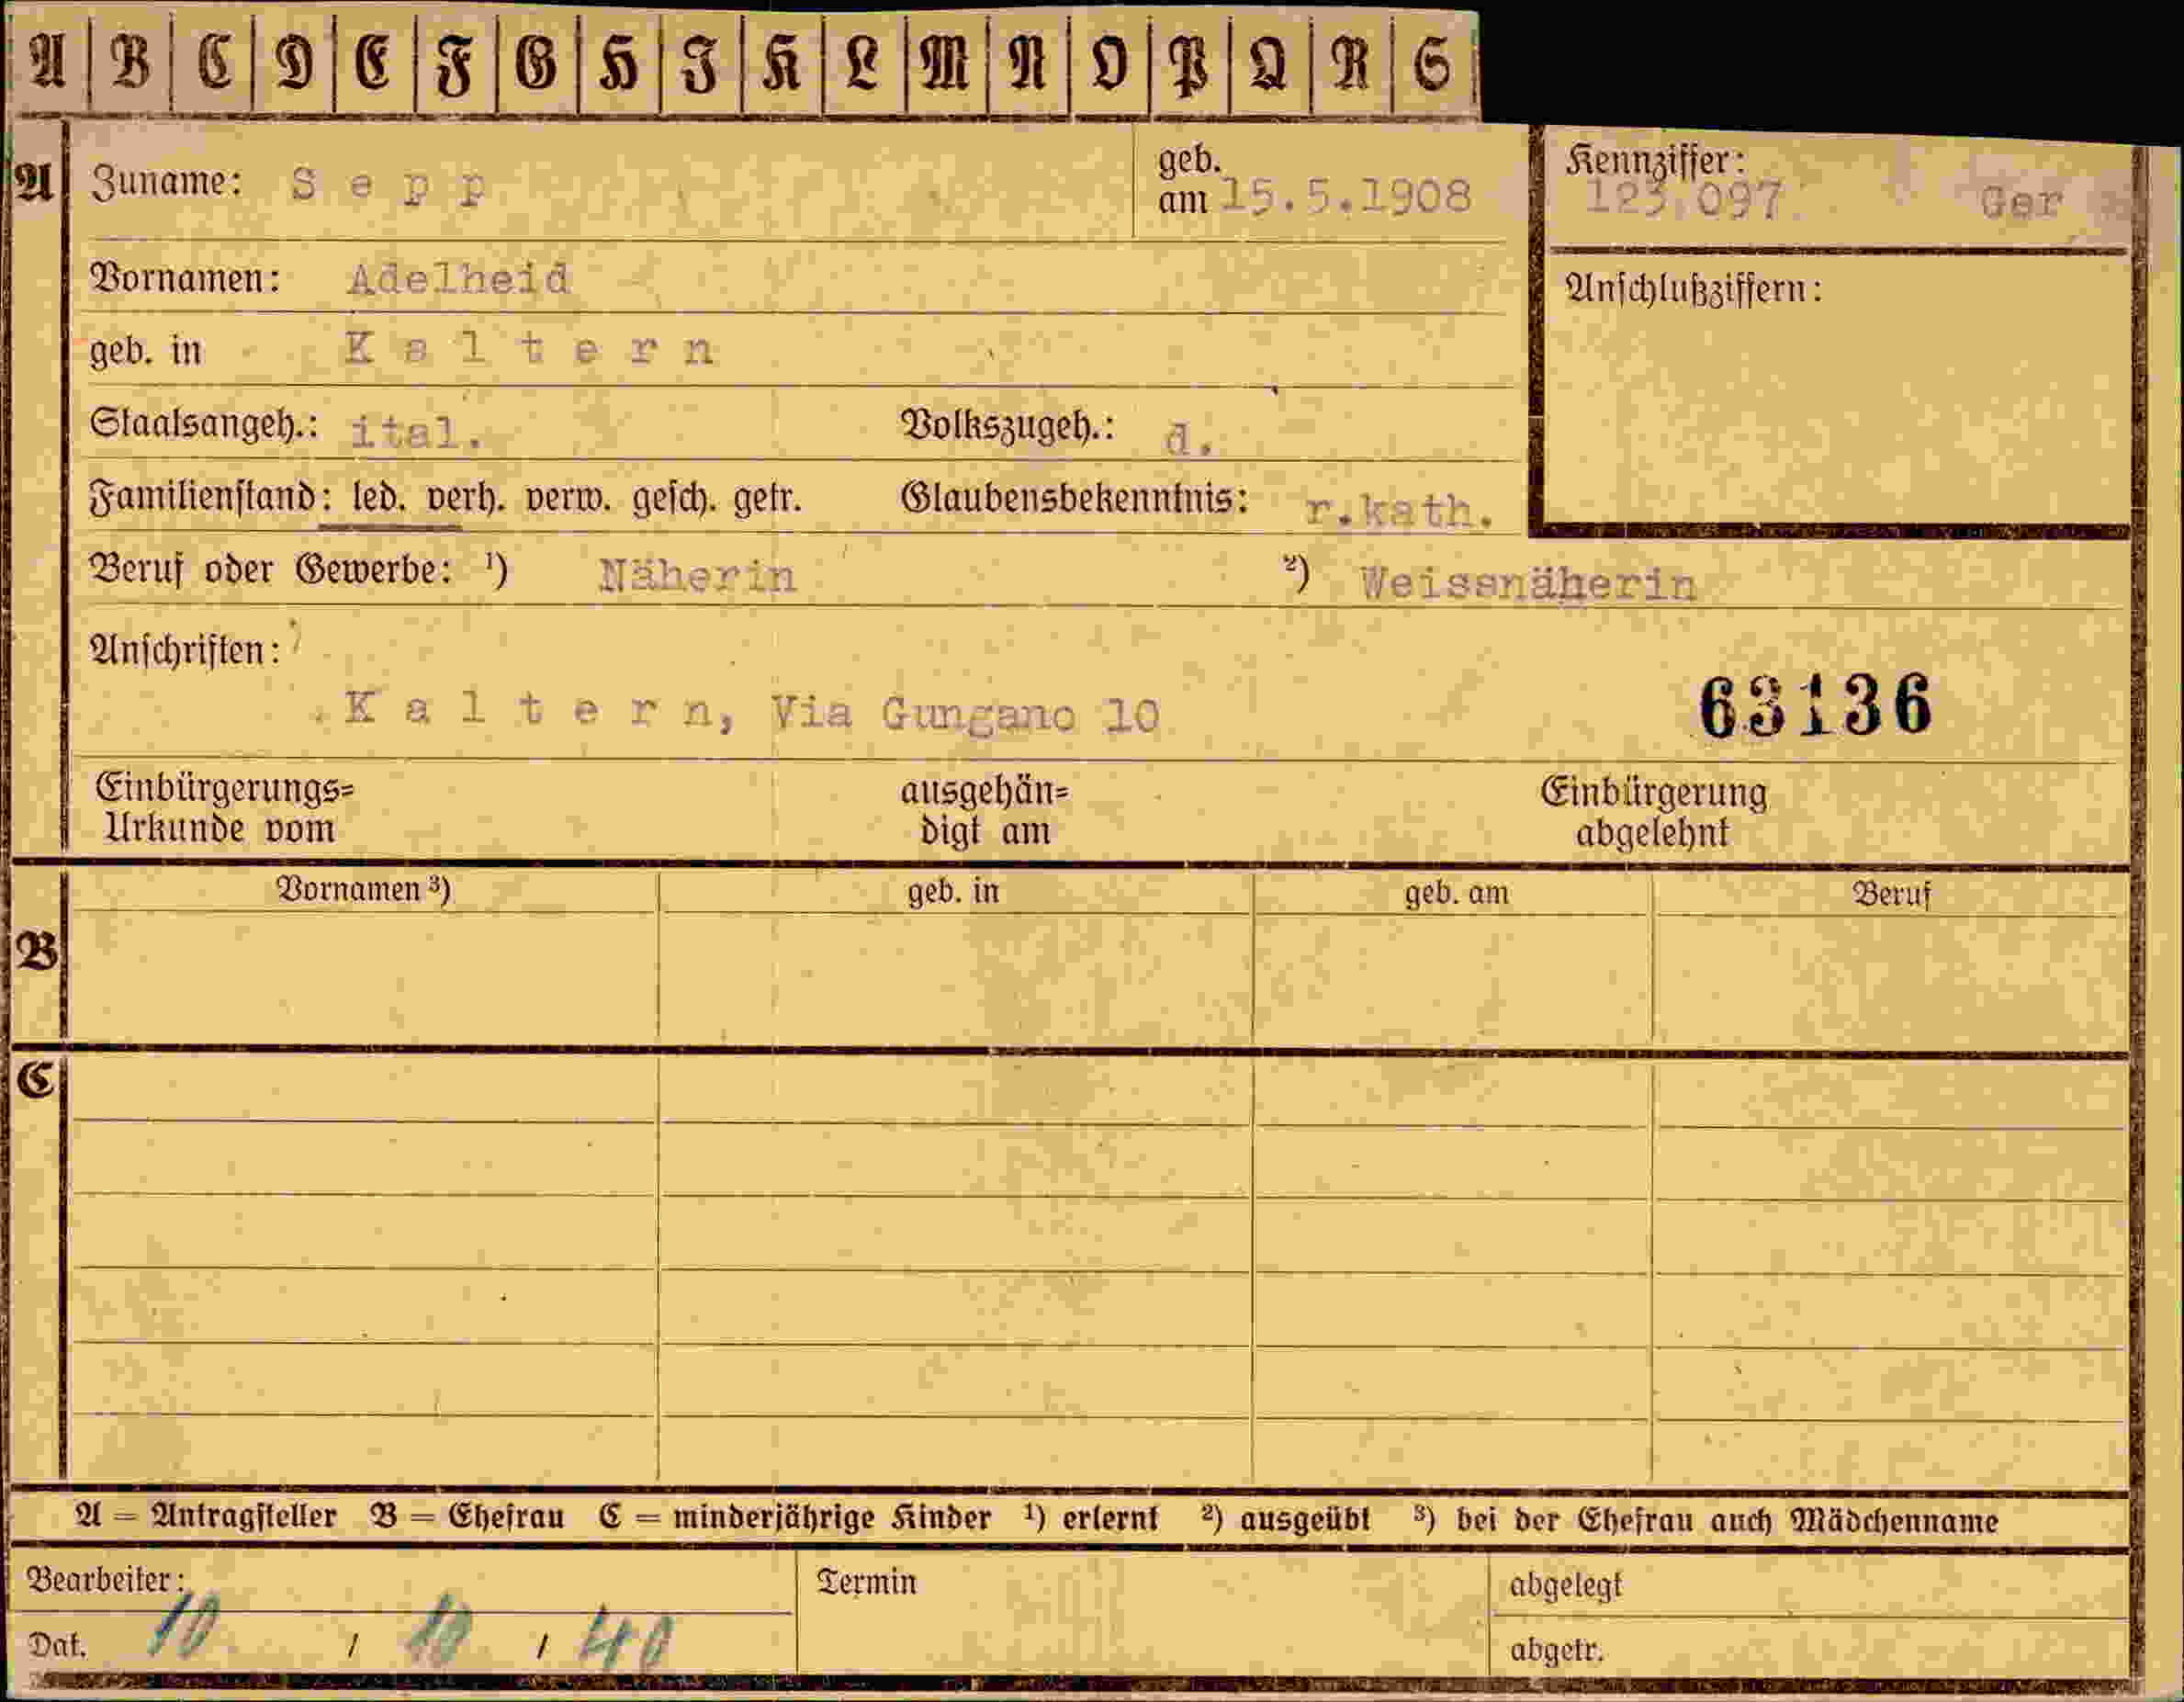 A B C D E F G H I K L M N O P Q R S
A Zuname: Sepp geb. am 15.5.1908
Kennziffer: 123.097 Ger
Vornamen: Adelheid
Anschlußziffern:
geb. in Kaltern
Staatsangeh.: ital. Volkszugeh.: d.
Familienstand: led. verh. verw. gesch. getr. Glaubensbekenntnis: r.kath.
Beruf oder Gewerbe: ¹) Näherin ²) Weissnäherin
Anschriften:
Kaltern, Via Gungano 10 63136
Einbürgerungs= ausgehän= Einbürgerung
Urkunde vom digt am abgelehnt
Vornamen ³) geb. in geb. am Beruf
B
C
A = Antragsteller B = Ehefrau C = minderjährige Kinder ¹) erlernt ²) ausgeübt ³) bei der Ehefrau auch Mädchenname
Bearbeiter: Termin abgelegt
Dat. 10 / 10 / 40 abgetr.